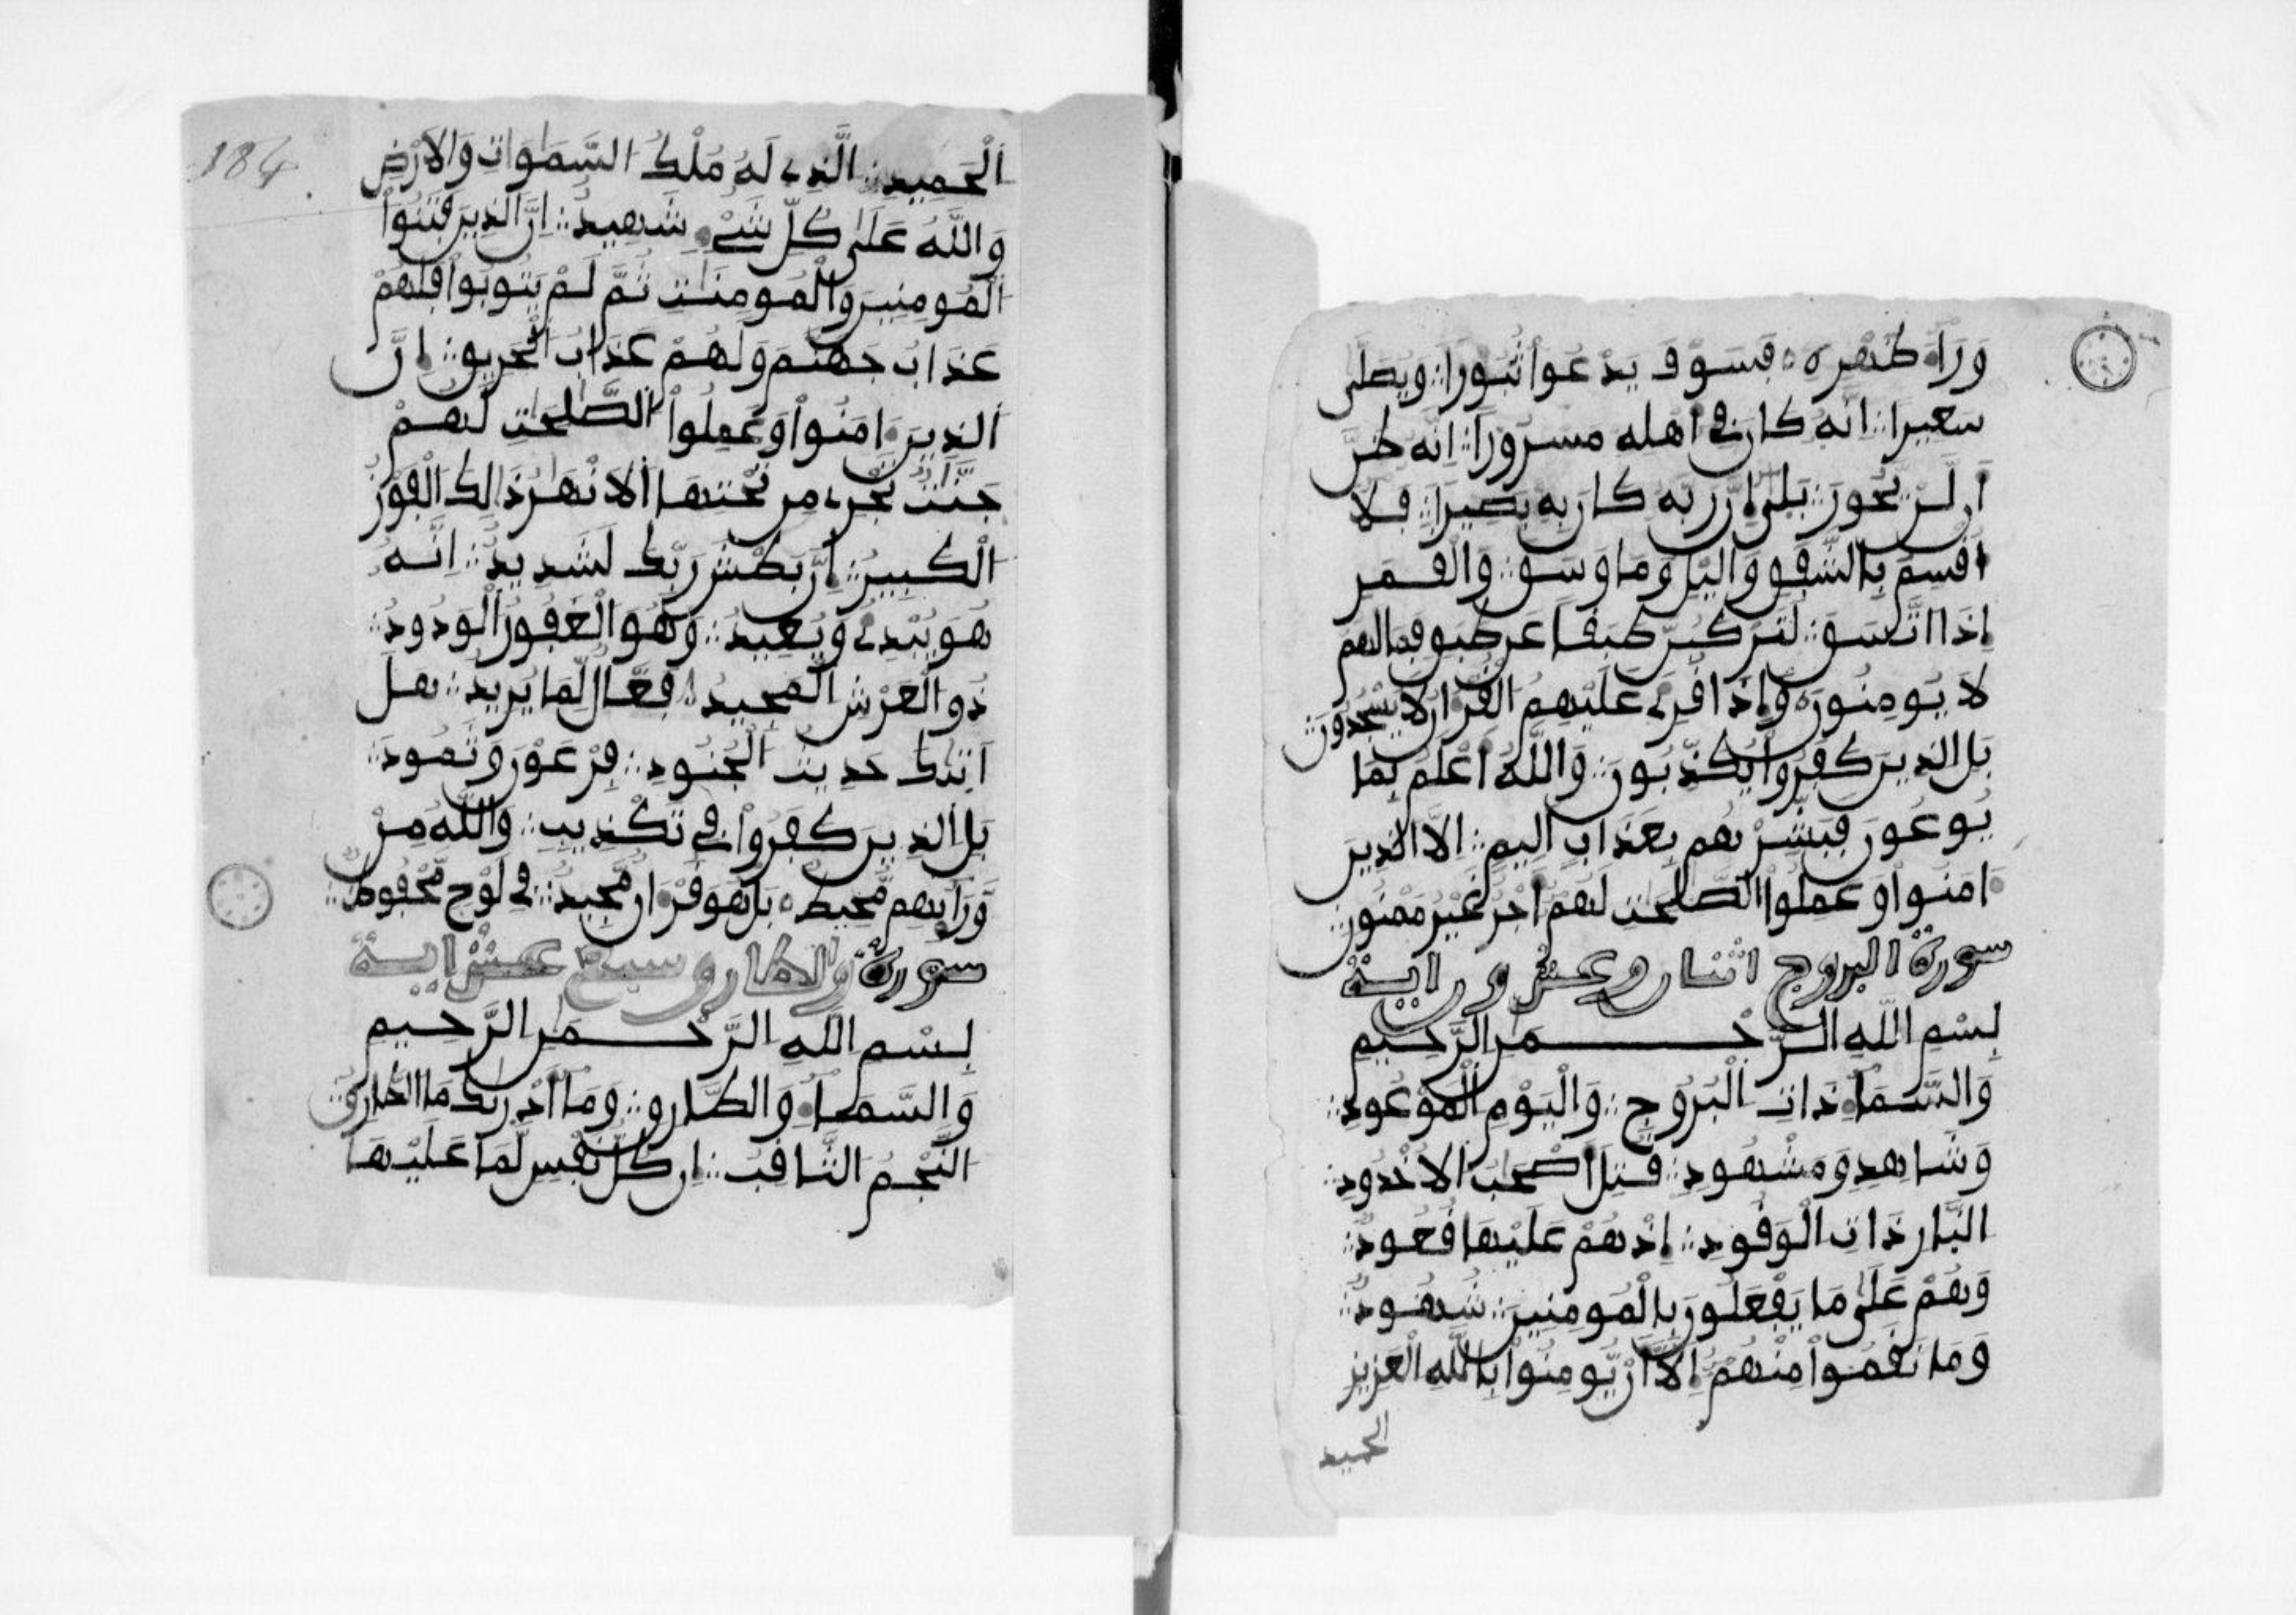 وَرَآءَ ظَهْرِهِ فَسَوْفَ يَدْعُوا ثُبُورًا وَيُصَلَّى
سَعِيرًا اِنَّهُ كَانَ فِي أَهْلِهِ مَسْرُورًا اِنَّهُ ظَنَّ
أَن لَّنْ يَّحُورَ بَلَىٰ إِنَّ رَبَّهُ كَانَ بِهِ بَصِيرًا فَلَا
أُقْسِمُ بِالشَّفَقِ وَاليْلِ وَمَا وَسَقَ وَالْقَمَرِ
إِذَا اتَّسَقَ لَتَرْكَبُنَّ طَبَقًا عَن طَبَقٍ فَمَا لَهُمْ
لَا يُومِنُونَ وَإِذَا قُرِئَ عَلَيْهِمُ الْقُرْءَانُ لَا يَسْجُدُونَ
بَلِ الذِينَ كَفَرُوا يُكَذِّبُونَ وَاللَّهُ أَعْلَمُ بِمَا
يُوعُونَ فَبَشِّرْهُم بِعَذَابٍ اَلِيمٍ اِلَّا الذِينَ
ءَامَنُوا وَعَمِلُوا الصَّٰلِحَٰتِ لَهُمْ أَجْرٌ غَيْرُ مَمْنُونٍ
سورة البروج اثنان وعشرون اية
بِسْمِ اللَّهِ الرَّحْمَٰنِ الرَّحِيمِ
وَالسَّمَاءِ ذَاتِ الْبُرُوجِ وَالْيَوْمِ الْمَوْعُودِ
وَشَاهِدٍ وَمَشْهُودٍ قُتِلَ أَصْحَٰبُ الُاخْدُودِ
النَّارِ ذَاتِ الْوَقُودِ إِذْ هُمْ عَلَيْهَا قُعُودٌ
وَهُمْ عَلَىٰ مَا يَفْعَلُونَ بِالْمُومِنِينَ شُهُودٌ
وَمَا نَقَمُوا مِنْهُمُ إِلَّا أَنْ يُّومِنُوا بِاللَّهِ الْعَزِيزِ
الحميد
184
اَلْحَمِيدِ الَّذِي لَهُ مُلْكُ السَّمَٰوَاتِ وَالَارْضِ
وَاللَّهُ عَلَىٰ كُلِّ شَيْءٍ شَهِيدٌ اِنَّ الذِينَ فَتَنُوا
الْمُومِنِينَ وَالْمُومِنَٰتِ ثُمَّ لَمْ يَتُوبُوا فَلَهُمْ
عَذَابُ جَهَنَّمَ وَلَهُمْ عَذَابُ الْحَرِيقِ إِنَّ
الذِينَ ءَامَنُوا وَعَمِلُوا الصَّٰلِحَٰتِ لَهُمْ
جَنَّٰتٌ تَجْرِي مِن تَحْتِهَا الَانْهَٰرُ ذَٰلِكَ الْفَوْزُ
الْكَبِيرُ إِنَّ بَطْشَ رَبِّكَ لَشَدِيدٌ اِنَّهُ
هُوَ يُبْدِئُ وَيُعِيدُ وَهُوَ الْغَفُورُ الْوَدُودُ
ذُو الْعَرْشِ الْمَجِيدُ فَعَّالٌ لِّمَا يُرِيدُ هَلَ
اَتَىٰكَ حَدِيثُ الْجُنُودِ فِرْعَوْنَ وَثَمُودَ
بَلِ الذِينَ كَفَرُوا فِي تَكْذِيبٍ وَاللَّهُ مِنْ
وَّرَآئِهِم مُّحِيطٌ بَلْ هُوَ قُرْءَانٌ مَّجِيدٌ فِي لَوْحٍ مَّحْفُوظٌ
سورة والطارق سبع عشر اية
بِسْمِ اللَّهِ الرَّحْمَٰنِ الرَّحِيمِ
وَالسَّمَاءِ وَالطَّارِقِ وَمَا أَدْرَىٰكَ مَا الطَّارِقُ
النَّجْمُ الثَّاقِبُ إِن كُلُّ نَفْسٍ لَّمَا عَلَيْهَا